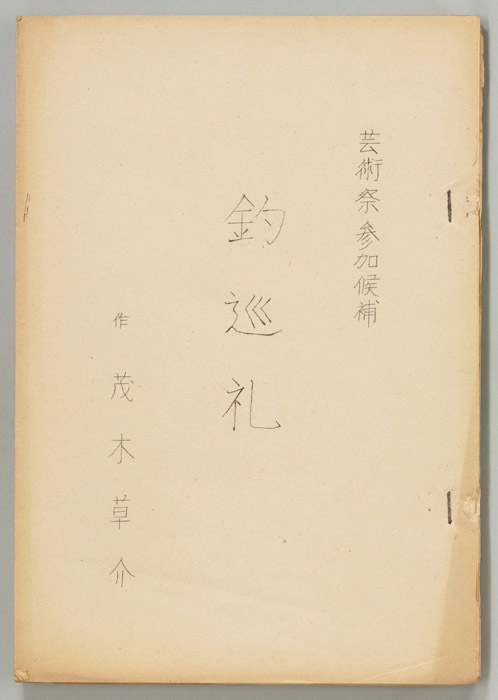 芸術祭参加候補
釣巡礼
作 茂木草介